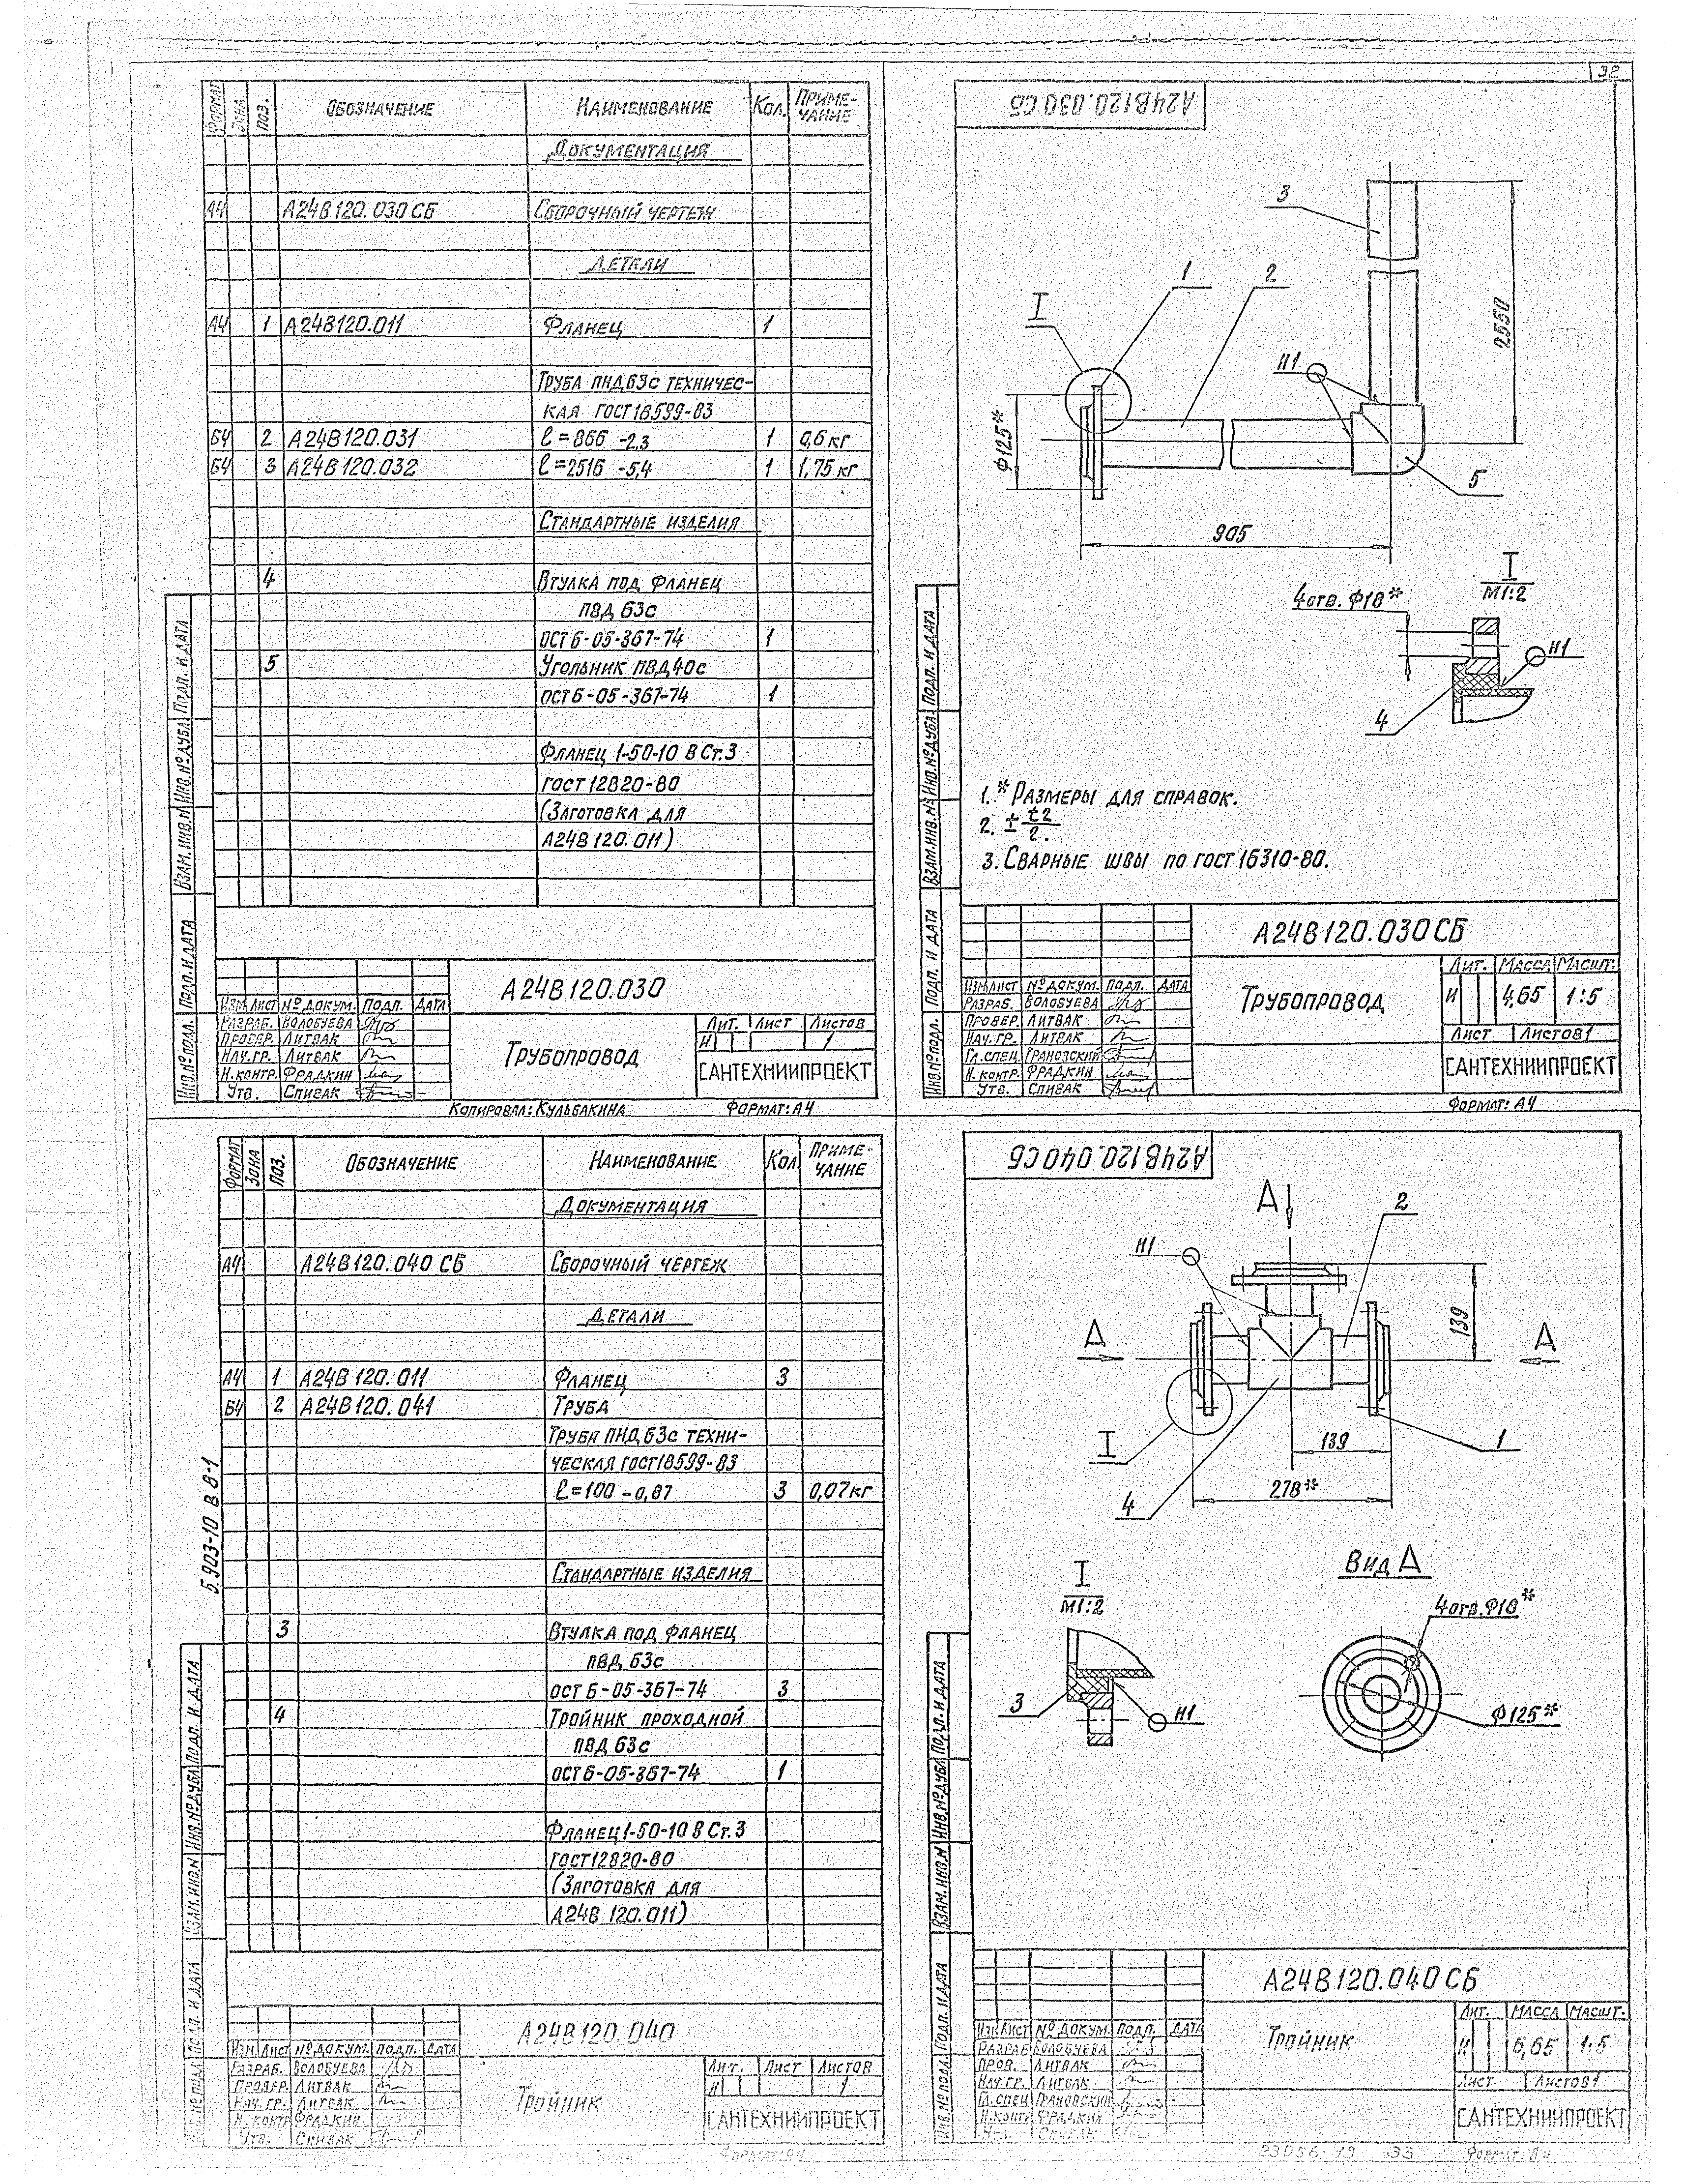 32
ФОРМАТ ЗОНА ПОЗ. ОБОЗНАЧЕНИЕ НАИМЕНОВАНИЕ КОЛ. ПРИМЕ-
ЧАНИЕ
ДОКУМЕНТАЦИЯ
А4 А24В120.030 СБ СБОРОЧНЫЙ ЧЕРТЕЖ
ДЕТАЛИ
А4 1 А24В120.011 ФЛАНЕЦ 1
ТРУБА ПНД 63с ТЕХНИЧЕС-
КАЯ ГОСТ 18599-83
Б4 2 А24В120.031 ℓ=866 -2,3 1 0,6 кг
Б4 3 А24В120.032 ℓ=2516 -5,4 1 1,75 кг
СТАНДАРТНЫЕ ИЗДЕЛИЯ
4 ВТУЛКА ПОД ФЛАНЕЦ
ПВД 63с
ОСТ 6-05-367-74 1
5 УГОЛЬНИК ПВД 40с
ОСТ 6-05-367-74 1
ФЛАНЕЦ 1-50-10 В Ст.3
ГОСТ 12820-80
(ЗАГОТОВКА ДЛЯ
А24В 120.011)
ИНВ.№ ПОДЛ. ПОДП. И ДАТА ВЗАМ.ИНВ.№ ИНВ.№ ДУБЛ. ПОДП. И ДАТА
А24В120.030
ИЗМ ЛИСТ № ДОКУМ. ПОДП. ДАТА
РАЗРАБ. ВОЛОБУЕВА
ПРОВЕР. ЛИТВАК
НАЧ.ГР. ЛИТВАК
Н.КОНТР. ФРАДКИН
УТВ. СПИВАК
ТРУБОПРОВОД
ЛИТ. ЛИСТ ЛИСТОВ
И 1
САНТЕХНИИПРОЕКТ
КОПИРОВАЛ: КУЛЬБАКИНА ФОРМАТ: А4
А24В120.030 СБ
3
1
2
I
И1
2550
Ф125*
5
905
I
М1:2
4 отв. Ф18*
И1
4
1. * РАЗМЕРЫ ДЛЯ СПРАВОК.
2. ± t2/2.
3. СВАРНЫЕ ШВЫ ПО ГОСТ 16310-80.
ИНВ.№ ПОДЛ. ПОДП. И ДАТА ВЗАМ.ИНВ.№ ИНВ.№ ДУБЛ. ПОДП. И ДАТА
А24В120.030СБ
ИЗМ ЛИСТ № ДОКУМ. ПОДП. ДАТА
РАЗРАБ. ВОЛОБУЕВА
ПРОВЕР. ЛИТВАК
НАЧ.ГР. ЛИТВАК
ГЛ.СПЕЦ. ГРАНОВСКИЙ
Н.КОНТР. ФРАДКИН
УТВ. СПИВАК
ТРУБОПРОВОД
ЛИТ. МАССА МАСШТ.
И 4,65 1:5
ЛИСТ ЛИСТОВ 1
САНТЕХНИИПРОЕКТ
ФОРМАТ: А4
ФОРМАТ ЗОНА ПОЗ. ОБОЗНАЧЕНИЕ НАИМЕНОВАНИЕ КОЛ ПРИМЕ-
ЧАНИЕ
ДОКУМЕНТАЦИЯ
А4 А24В120.040 СБ СБОРОЧНЫЙ ЧЕРТЕЖ
ДЕТАЛИ
А4 1 А24В 120.011 ФЛАНЕЦ 3
Б4 2 А24В120.041 ТРУБА
ТРУБА ПНД 63с ТЕХНИ-
ЧЕСКАЯ ГОСТ 18599-83
ℓ=100 -0,87 3 0,07кг
СТАНДАРТНЫЕ ИЗДЕЛИЯ
3 ВТУЛКА ПОД ФЛАНЕЦ
ПВД 63с
ОСТ 6-05-367-74 3
4 ТРОЙНИК ПРОХОДНОЙ
ПВД 63с
ОСТ 6-05-367-74 1
ФЛАНЕЦ 1-50-10 В Ст.3
ГОСТ 12820-80
(ЗАГОТОВКА ДЛЯ
А24В 120.011)
5.903-10 В 8-1
ПОДП. И ДАТА ВЗАМ.ИНВ.№ ИНВ.№ ДУБЛ ПОДП. И ДАТА
А24В120.040
ИЗМ ЛИСТ № ДОКУМ. ПОДП. ДАТА
РАЗРАБ. ВОЛОБУЕВА
ПРОВЕР. ЛИТВАК
НАЧ.ГР. ЛИТВАК
Н.КОНТР ФРАДКИН
УТВ. СПИВАК
ТРОЙНИК
ЛИТ. ЛИСТ ЛИСТОВ
И 1
САНТЕХНИИПРОЕКТ
ФОРМАТ А4
А24В120.040 СБ
А
2
И1
139
А
А
I
139
1
278*
4
I
М1:2
3
И1
ВИД А
4 отв. Ф18*
Ф125*
ИНВ.№ ПОДЛ. ПОДП. И ДАТА ВЗАМ.ИНВ.№ ИНВ.№ ДУБЛ ПОДП. И ДАТА
А24В120.040СБ
ИЗМ ЛИСТ № ДОКУМ. ПОДП. ДАТА
РАЗРАБ ВОЛОБУЕВА
ПРОВ. ЛИТВАК
НАЧ.ГР. ЛИТВАК
ГЛ.СПЕЦ ГРАНОВСКИЙ
Н.КОНТР ФРАДКИН
УТВ. СПИВАК
ТРОЙНИК
ЛИТ. МАССА МАСШТ.
И 6,65 1:5
ЛИСТ ЛИСТОВ 1
САНТЕХНИИПРОЕКТ
23056-19 33 ФОРМАТ: А4